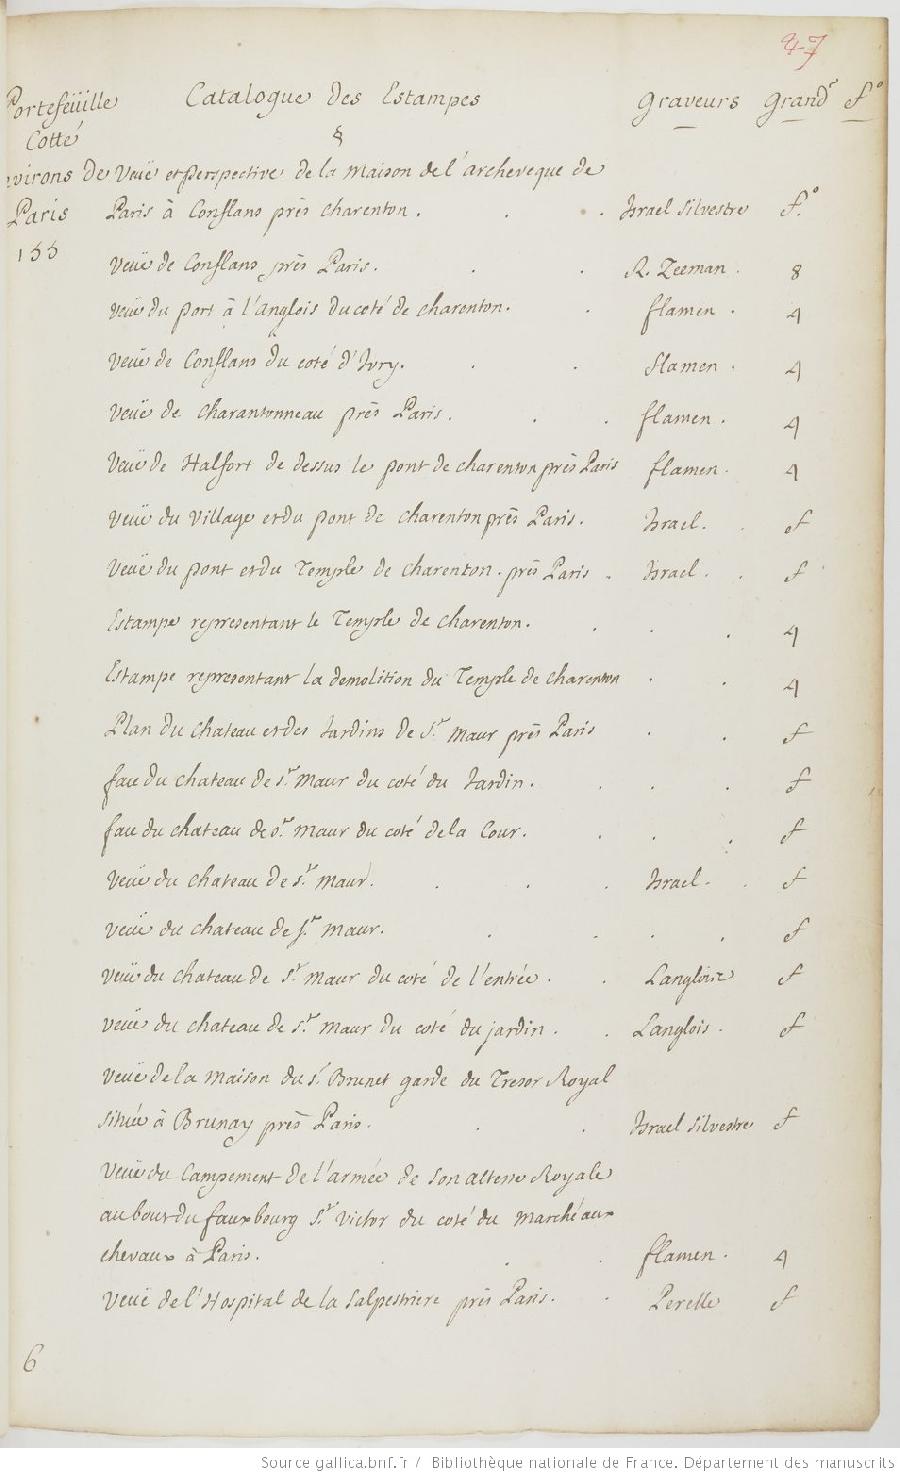 47
Portefeüille Catalogue Des Estampes Graveurs Grandr fo
Cotté §
Environs De Veüe et perspective de la Maison de l'archeveque de
Paris Paris à Conflans près Charenton. Israel Silvestre f.o
155
Veüe de Conflans près Paris. R. Zeeman. 8
Veüe du port à l'anglois du coté de Charenton. flamen. 4
Veüe de Conflans du coté d'Ivry. flamen. 4
Veüe de Charantonneau près Paris. flamen. 4
Veüe de Halfort de dessus le pont de charenton près Paris flamen. 4
Veüe du Village et du pont de Charenton près Paris. Israel. f
Veüe du pont et du Temple de Charenton. près Paris. Israel. f
Estampe representant le Temple de Charenton. 4
Estampe representant la demolition du Temple de charenton 4
Plan du Chateau et des Jardins de St. Maur près Paris f
face du chateau de St. Maur du coté du Jardin. f
face du chateau de St. Maur du coté de la Cour. f
Veüe du Chateau de St. Maur. Israel. f
Veüe du chateau de St. Maur. f
Veüe du chateau de St. Maur du coté de l'entrée. Langlois f
Veüe du chateau de St. Maur du coté du jardin. Langlois. f
Veüe de la Maison du Sr. Brunet garde du Tresor Royal
située à Brunay près Paris. Israel Silvestre f
Veüe du Campement de l'armée de Son altesse Royale
au bout du fauxbourg St. Victor du coté du Marché aux
chevaux à Paris. flamen. 4
Veüe de l'Hospital de la Salpestriere près Paris. Perelle f
6
Source gallica.bnf.fr / Bibliothèque nationale de France. Département des manuscrits